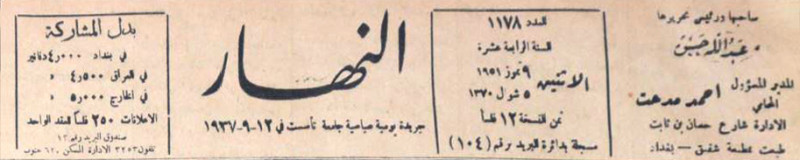 صاحبها ورئيس تحريرها
عبدالله حسن
المدير المسؤول
المحامي
احمد مدحت
الادارة شارع حسان بن ثابت
طبعت بمطبعة شفيق – بغداد
العدد ١١٧٨
السنة الرابعة عشرة
الاثنين
٩ تموز ١٩٥١
٥ شوال ١٣٧٠
ثمن النسخة ١٢ فلساً
مسجلة بدائرة البريد برقم (١٠٤)
النهار
جريدة يومية سياسية جامعة تأسست في ١٢-٩-١٩٣٧
بدل المشاركة
في بغداد ٤٫٠٠٠ دنانير
في العراق ٤٫٥٠٠ »
في الخارج ٥٫٠٠٠ »
الاعلانات ٢٥٠ فلساً للعقد الواحد
صندوق البريد رقم ١٢
تلفون ٣٢٥٣ الادارة السكن ٦٢٠ جنوب